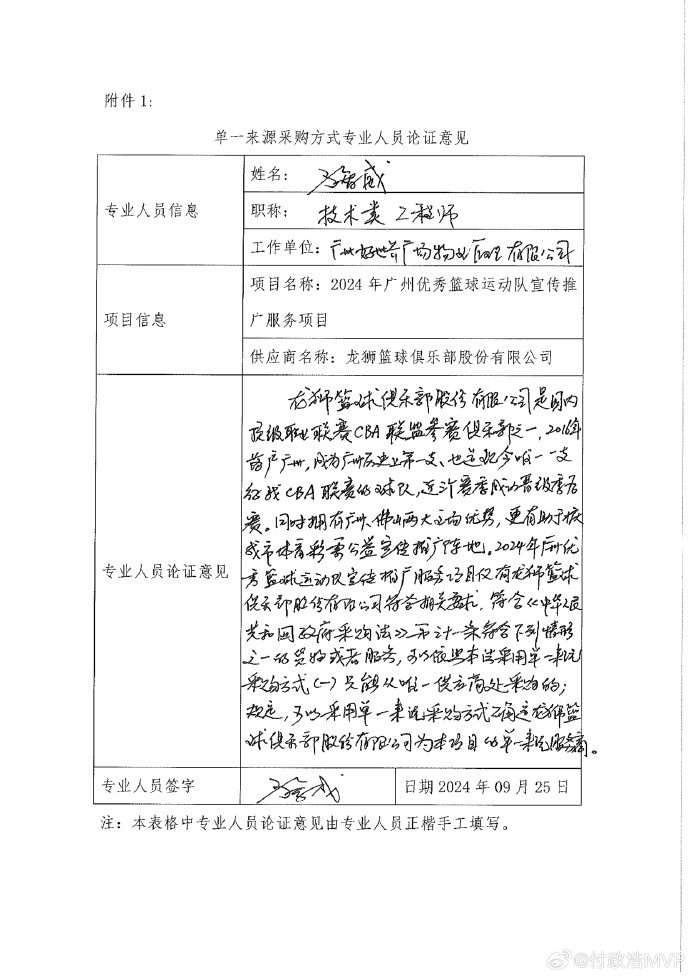 附件1:
单一来源采购方式专业人员论证意见
专业人员信息
姓名:
职称: 技术类 工程师
工作单位: 广州好世界广场物业管理有限公司
项目信息
项目名称: 2024年广州优秀篮球运动队宣传推
广服务项目
供应商名称: 龙狮篮球俱乐部股份有限公司
专业人员论证意见
龙狮篮球俱乐部股份有限公司是国内
顶级职业联赛CBA联盟参赛俱乐部之一,2016年
落户广州,成为广州历史上第一支、也是迄今唯一一支
征战CBA联赛的球队,近几个赛季成功晋级季后
赛。同时拥有广州、佛山两大主场优势,更有助于扩
城市体育彩票公益宣传推广阵地。2024年广州优
秀篮球运动队宣传推广服务项目仅有龙狮篮球
俱乐部股份有限公司符合相关要求,符合《中华人民
共和国政府采购法》第三十一条符合下列情形
之一的货物或者服务,可以依照本法采用单一来源
采购方式(一)只能从唯一供应商处采购的;
规定,可以采用单一来源采购方式确定龙狮篮
球俱乐部股份有限公司为本项目的单一来源服务商。
专业人员签字
日期2024年09月25日
注: 本表格中专业人员论证意见由专业人员正楷手工填写。
@付政浩MVP